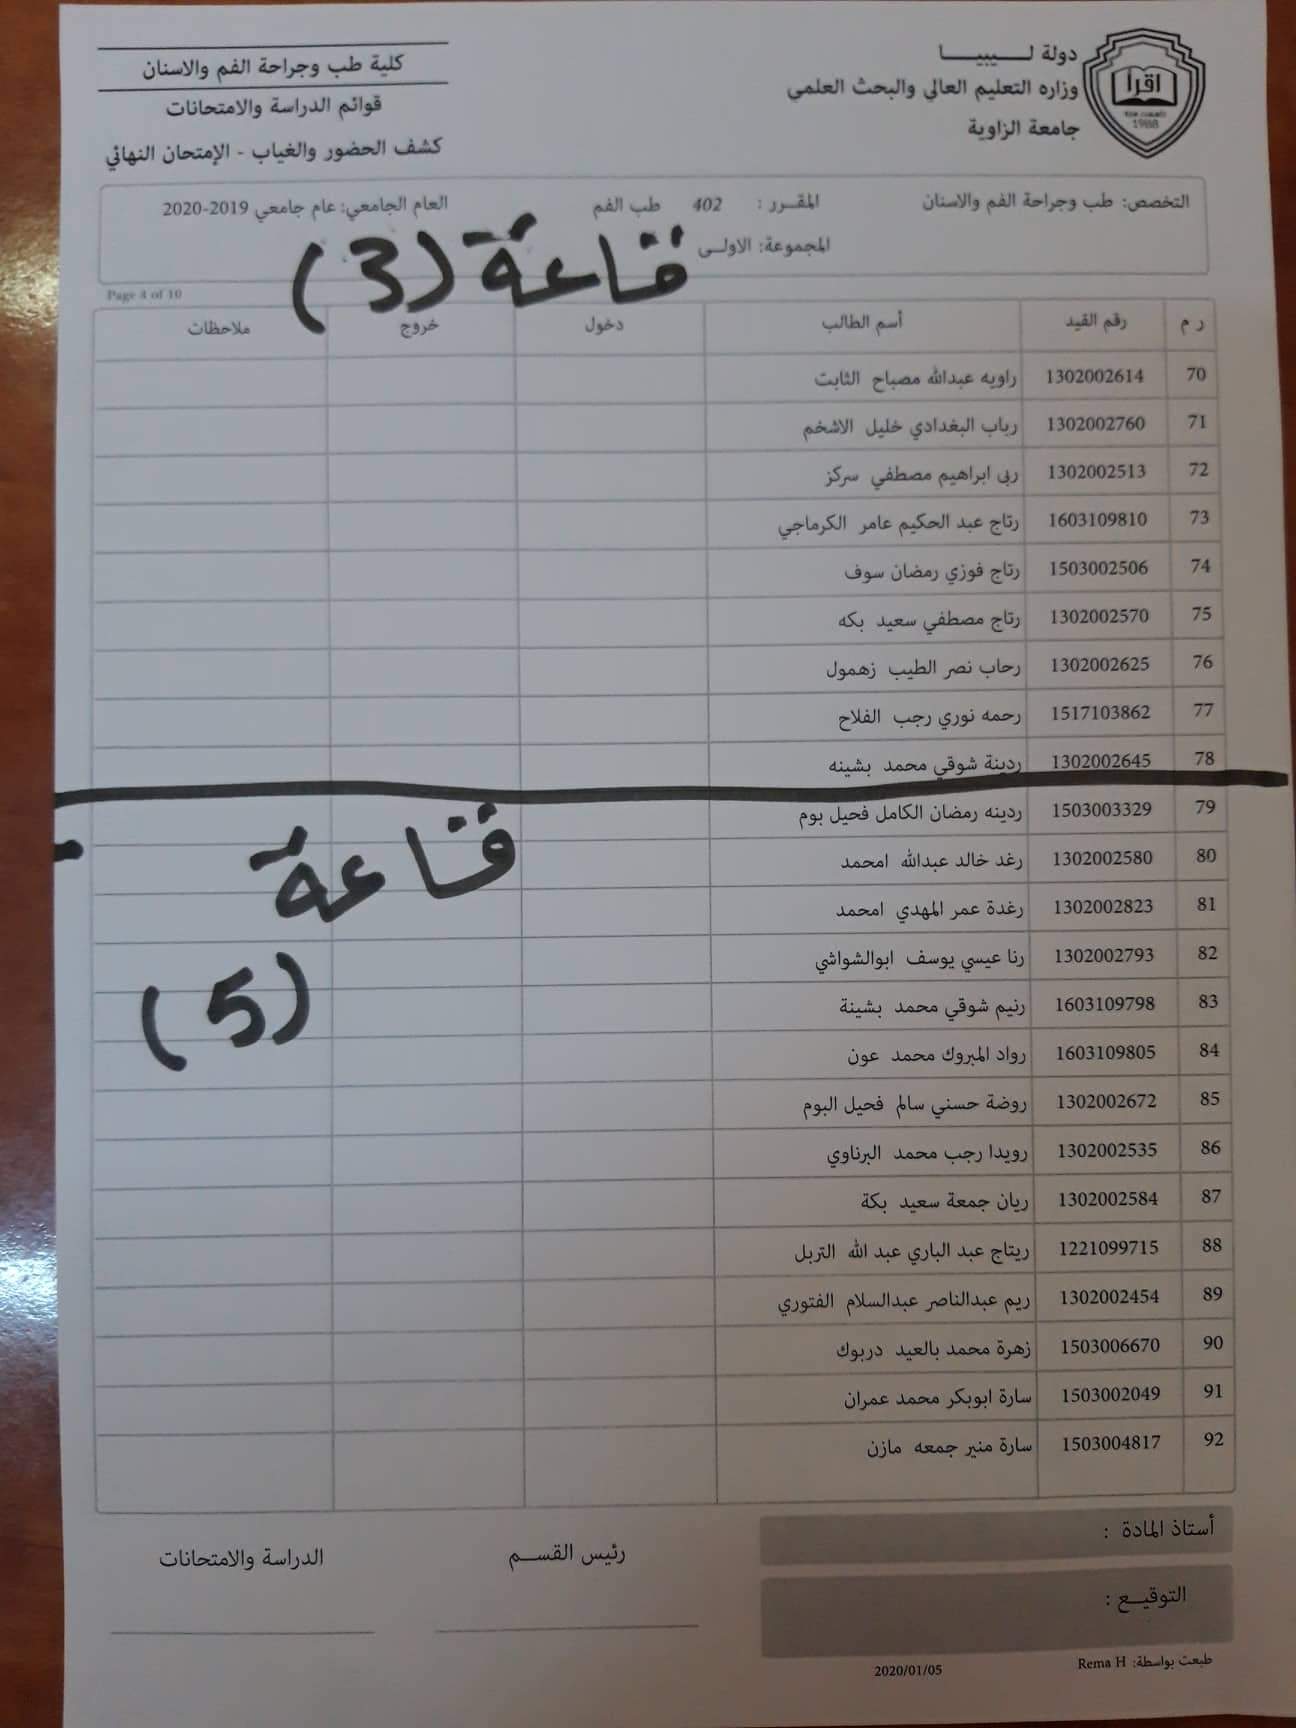 دولة لـــيبيـــا
وزاره التعليم العالي والبحث العلمي
جامعة الزاوية
اقرأ
1988
كلية طب وجراحة الفم والاسنان
قوائم الدراسة والامتحانات
كشف الحضور والغياب - الإمتحان النهائي
التخصص: طب وجراحة الفم والاسنان المقـرر : 402 طب الفم العام الجامعي: عام جامعي 2019-2020
المجموعة: الاولـى
قاعة (3)
Page 4 of 10
ر م رقم القيد أسم الطالب دخول خروج ملاحظات
70 1302002614 راويه عبدالله مصباح الثابت
71 1302002760 رباب البغدادي خليل الاشخم
72 1302002513 ربى ابراهيم مصطفي سركز
73 1603109810 رتاج عبد الحكيم عامر الكرماجي
74 1503002506 رتاج فوزي رمضان سوف
75 1302002570 رتاج مصطفي سعيد بكه
76 1302002625 رحاب نصر الطيب زهمول
77 1517103862 رحمه نوري رجب الفلاح
78 1302002645 ردينة شوقي محمد بشينه
79 1503003329 ردينه رمضان الكامل فحيل بوم
80 1302002580 رغد خالد عبدالله امحمد
81 1302002823 رغدة عمر المهدي امحمد
82 1302002793 رنا عيسي يوسف ابوالشواشي
83 1603109798 رنيم شوقي محمد بشينة
84 1603109805 رواد المبروك محمد عون
85 1302002672 روضة حسني سالم فحيل البوم
86 1302002535 رويدا رجب محمد البرناوي
87 1302002584 ريان جمعة سعيد بكة
88 1221099715 ريتاج عبد الباري عبد الله التربل
89 1302002454 ريم عبدالناصر عبدالسلام الفتوري
90 1503006670 زهرة محمد بالعيد دربوك
91 1503002049 سارة ابوبكر محمد عمران
92 1503004817 سارة منير جمعه مازن
قاعة
(5)
أستاذ المادة :
التوقيـع :
رئيس القســم
الدراسة والامتحانات
طبعت بواسطة: Rema H
2020/01/05